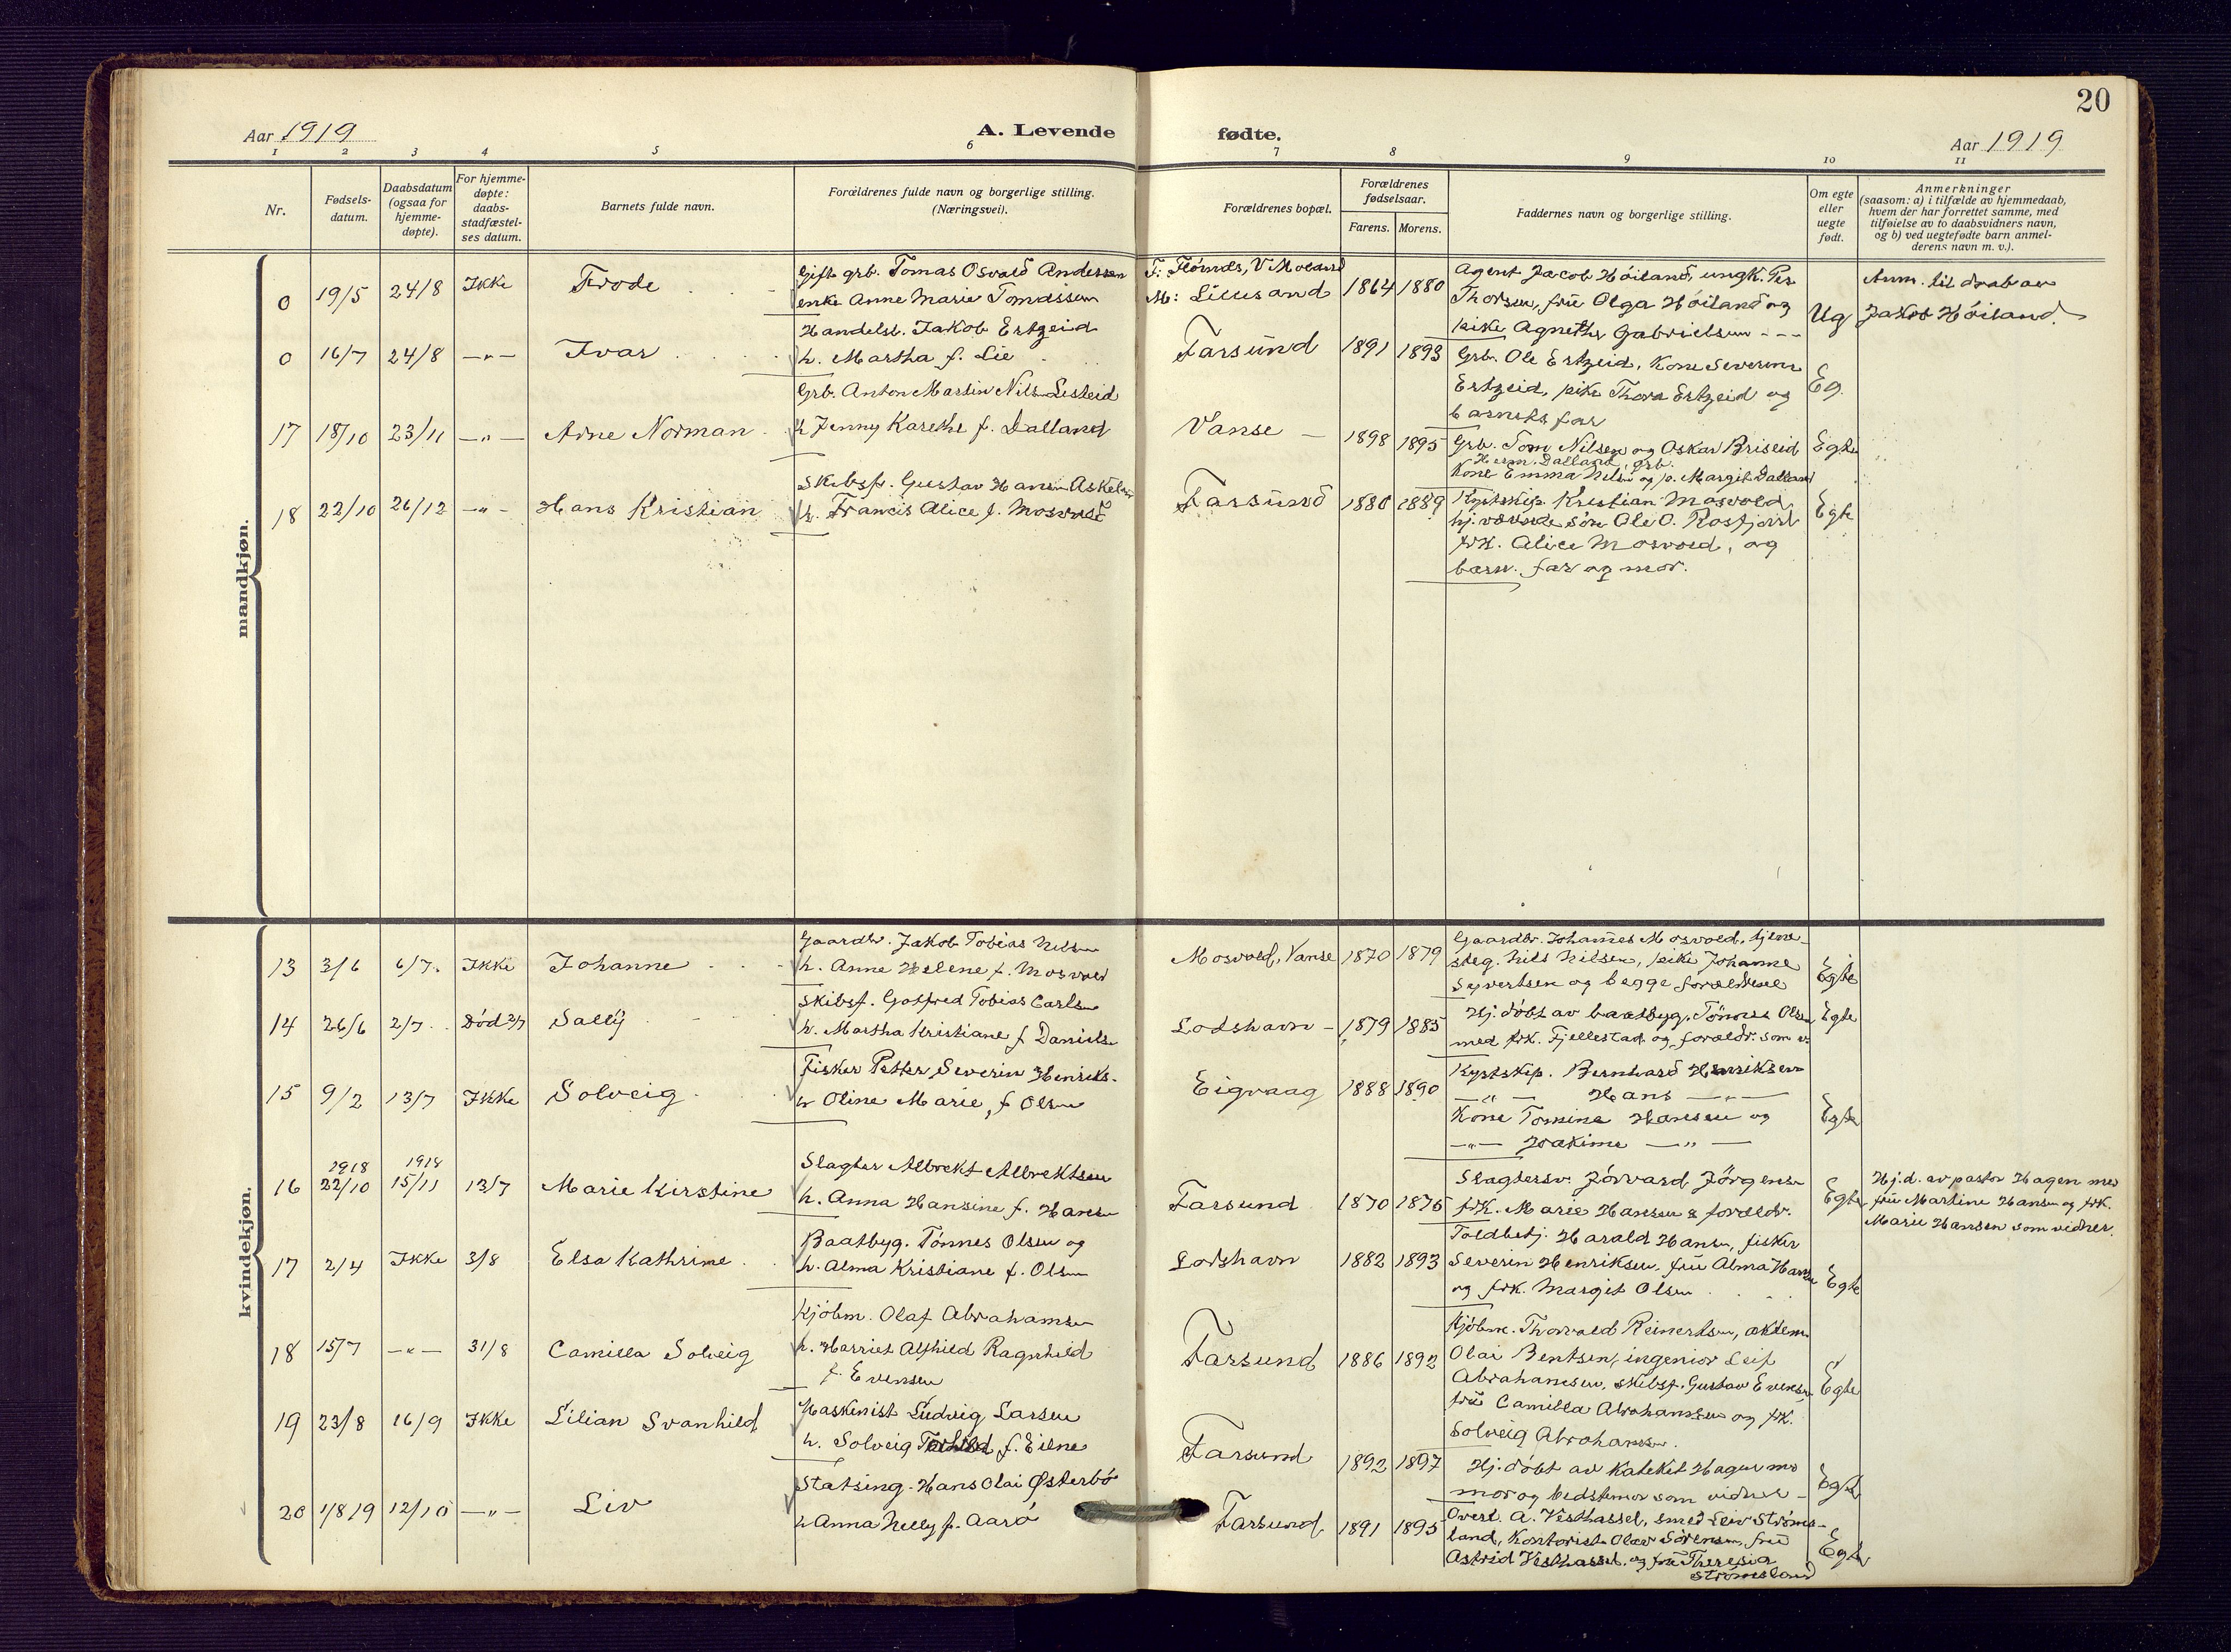 20
Aar 1919
A. Levende fødte.
Aar 1919
1 2 3 4 5 6 7 8 9 10 11
Nr.
Fødsels-
datum.
Daabsdatum
(ogsaa for
hjemme-
døpte).
For hjemme-
døpte:
daabs-
stadfæstel-
ses datum.
Barnets fulde navn.
Forældrenes fulde navn og borgerlige stilling.
(Næringsvei).
Forældrenes bopæl.
Forældrenes
fødselsaar.
Farens. Morens.
Faddernes navn og borgerlige stilling.
Om egte
eller
uegte
født.
Anmerkninger
(saasom: a) i tilfælde av hjemmedaab,
hvem der har forrettet samme, med
tilføielse av to daabsvidners navn,
og b) ved uegtefødte barn anmel-
derens navn m. v.).
mandkjøn.
0 19/5 24/8 Ikke Frode
Gift grb. Tomas Osvald Andersen
enke Anne Marie Tomassen
M: Lillesand 1864 1880
Agent Jacob Höiland, ungk. Per
Thorsen, frü Olga Höiland og
pike Agnethe Gabrielsen
Ug
Anm. til daab av
Jakob Höiland.
0 16/7 24/8 -"- Ivar
Handelsl. Jakob Ertzeid
h. Martha f. Lie
Farsund 1891 1893
Grb. Ole Ertzeid, Kone Severine
Ertzeid, pike Thora Ertzeid og
barnets far
Eg.
17 18/10 23/11 -"- Arne Norman
Grb. Anton Martin Nilsen Listeid
h Jenny Karethe f. Dalland
Vanse - 1898 1895
Grb. Tom Nilsen og Oskar Briseid
Herm. Dalland, grb.
Kone Emma Nilsen og p. Margit Dalland
Egte
18 22/10 26/12 -"- Hans Kristian
Skibsf. Gustav Hansen Askelsen
h. Francis Alice f. Mosvold
Farsund 1880 1889
Kystskip. Kristian Mosvold,
hj. værende sön Ole O. Rosfjord
frk. Alice Mosvold, og
barn. far og mor.
Egte
kvindekjøn.
13 3/6 6/7 Ikke Johanne
Gaardbr. Jakob Tobias Nilsen
h. Anne Helene f. Mosvold
Mosvold, Vanse 1870 1879
Gaardbr. Johannes Mosvold, tjene-
steg. Nils Nilsen, pike Johanne
Syvertsen og begge forældrene
Egte
14 26/6 2/7 Död 3/7 Sally
Skibsf. Gotfred Tobias Carlsen
h. Martha Kristiane f Danielsen
Lodshavn - 1879 1885
Hj. döbt av baatbyg. Tönnes Olsen
med frk. Fjellestad og forældr. som v.
Egte
15 9/2 13/7 Ikke Solveig
Fisker Petter Severin Henriks.
h Oline Marie, f Olsen
Eigvaag 1888 1890
Kystskip. Bernhard Henriksen
-"- Hans -"-
Kone Tomine Hansen og
-"- Joakime -"-
Egte
16 1918 22/10 1918 15/11 13/7 Marie Kirstine
Slagter Albrekt Albrektsen
h. Anna Hansine f. Hansen
Farsund 1870 1875
Slagtersv. Jörvard Jörgensen
frk. Marie Hansen & forældr.
Egte
Hj.d. av pastor Hagen med
frü Martine Hansen og frk.
Marie Hansen som vidner.
17 2/4 Ikke 3/8 Elsa Kathrine
Baatbyg. Tönnes Olsen og
h. Alma Kristiane f. Olsen
Lodshavn 1882 1893
Toldbetj. Harald Hansen, fisker
Severin Henriksen, frü Alma Hansen
og frk. Margit Olsen
Egte
18 15/7 -"- 31/8 Camilla Solveig
Kjöbm. Olaf Abrahamsen
h. Harriet Alfhild Ragnhild
f. Evensen
Farsund 1886 1892
Kjöbm. Thorvald Reinertsen,
Olai Bentsen, ingeniör Leif
Abrahamsen, skibsf. Gustav Evensen,
frü Camilla Abrahamsen og frk.
Solveig Abrahamsen.
Egte
19 23/8 16/9 Ikke Lilian Svanhild
Maskinist Ludvig Larsen
h. Solveig f. Eilne
Farsund 1892 1897
Hj. döbt av Kateket Hagen med
mor og bedstemor som vidner -
Egte
20 1/8 19 12/10 -"- Liv
Statsing. Hans Olai Østerbö
h Anna Nelly f. Aarö
Farsund 1891 1895
Overl. A. Vesthassel, smed Leiv Ströms-
land, Kontorist Olav Sörensen, frü
Astrid Vesthassel, og frü Theresia
Strömsland
Egte